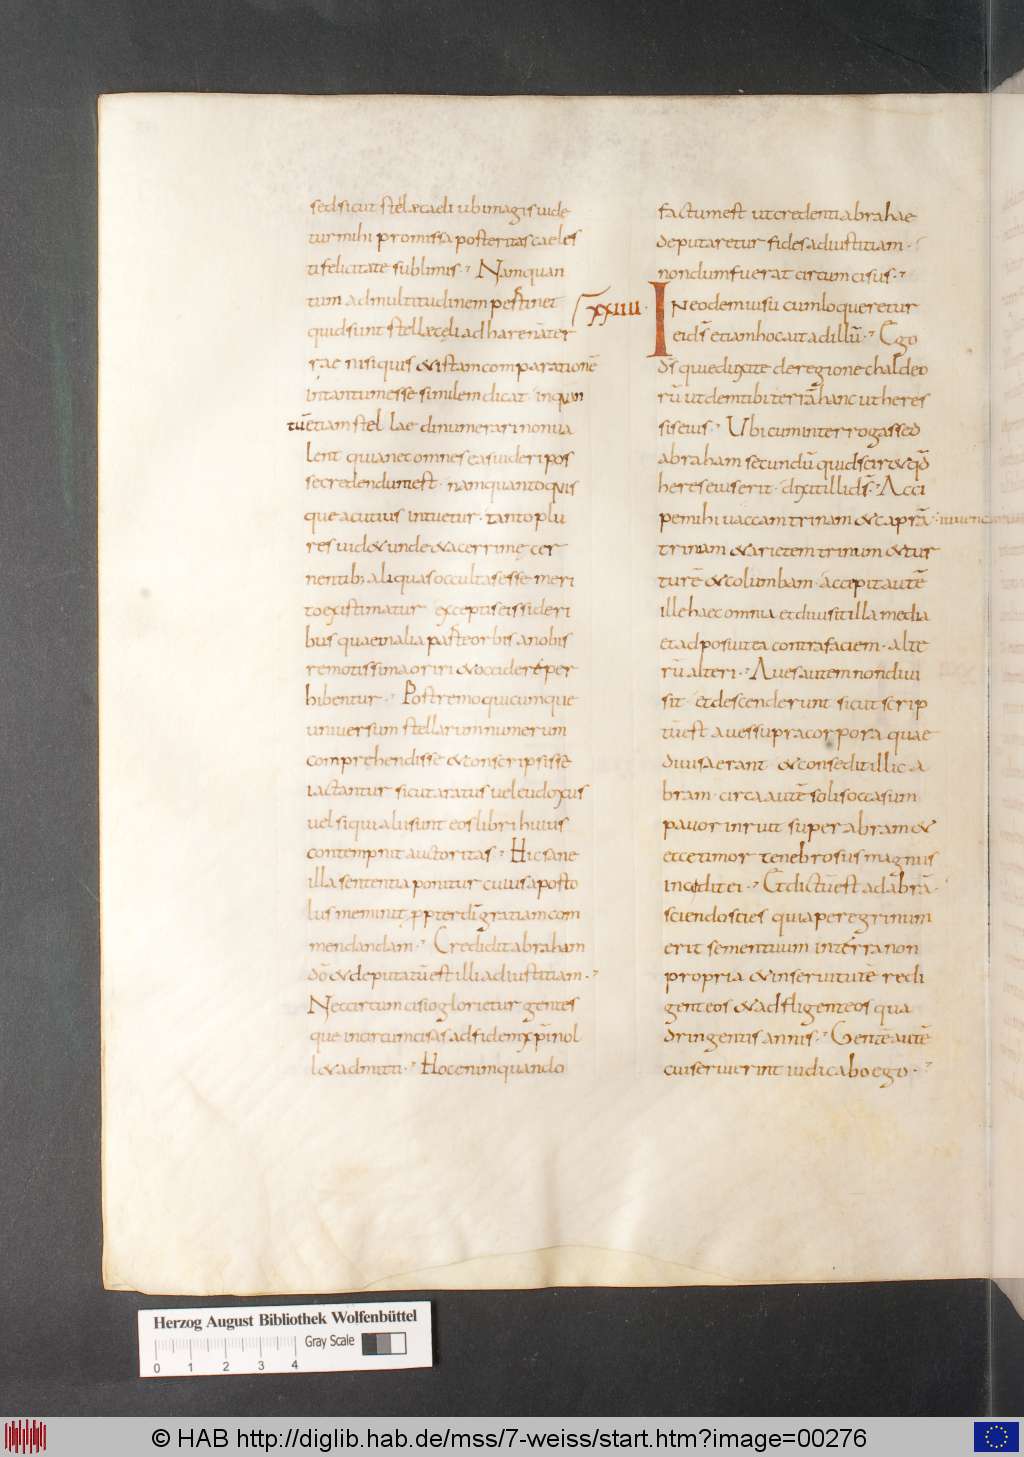 sedsicut stelaecaeli ubimagisuide
turmihi promissa posteritascaeles
tifelicitate sublimis. Namquan
tum admultitudinem pertinet
quidsunt stellaecęli adharenāter
rae nisiquis &istamcomparationē
intantumesse similemdicat. inquan
tū etiamstel lae dinumerarinonua
lent quianecomnes easuideripos
secredendumest. namquantoquis
queacutius intuetur. tantoplu
resuid& unde &acerrimę cer
nentib; aliquasoccultasesse meri
toexistimatur exceptiseissideri
bus quaeinaliaparteorbis anobis
remotissimaoriri &occidereper
hibentur. Postremoquicumque
universum stellarumnumerum
comprehendisse &conscripsisse
iactantur sicutaratus ueleudoxus
uelsiquialiisunt eoslibrihuius
contempnit auctoritas. Hicsane
illasententiaponitur cuiusaposto
lusmeminit, ppterdīgratiamcom
mendandam. Crediditabraham
dō &deputatūest illi adiustitiam.
Neccircumcisioglorietur gentes
que incircumcisas adfidemxpinol
l&admitti. Hocenimquando
factumest utcredentiabrahae
deputaretur fidesadiustitiam.
nondumfuerat circumcisus.
xxiiii. Ineodemuisu cumloqueretur
eidš etiamhocaitadillū. Ego
dš quieduxite deregionechaldeo
rū utdemtibiterrāhanc utheres
siseius. Ubicuminterrogassed
abraham secundū quidscir&qd
hereseiuserit. dixitillidš. Acci
pemihiuaccamtrinam &caprā.
trinam &arietemtrinum &tur
turē &columbam. accepitautē
illehaecomnia. etdiuisitillamedia
etadposuitea contrafaciem. alte
rū alteri. Auesautemnondiui
sit. etdescenderunt sicutscrip
tūest auessupracorpora quae
diuisaerant. &conseditillica
bram. circaautē solisoccasum
pauorinruit superabram&
eccetimor tenebrosusmagnus
inciditei. Etdictūest adābrā.
sciendoscies quiaperegrinum
erit sementuum interranon
propria &inseruitutē redi
genteos &adfligenteos qua
dringentis annis. Gentēautē
cuiseruierint iudicaboego.
Herzog August Bibliothek Wolfenbüttel
Gray Scale
0 1 2 3 4
© HAB http://diglib.hab.de/mss/7-weiss/start.htm?image=00276